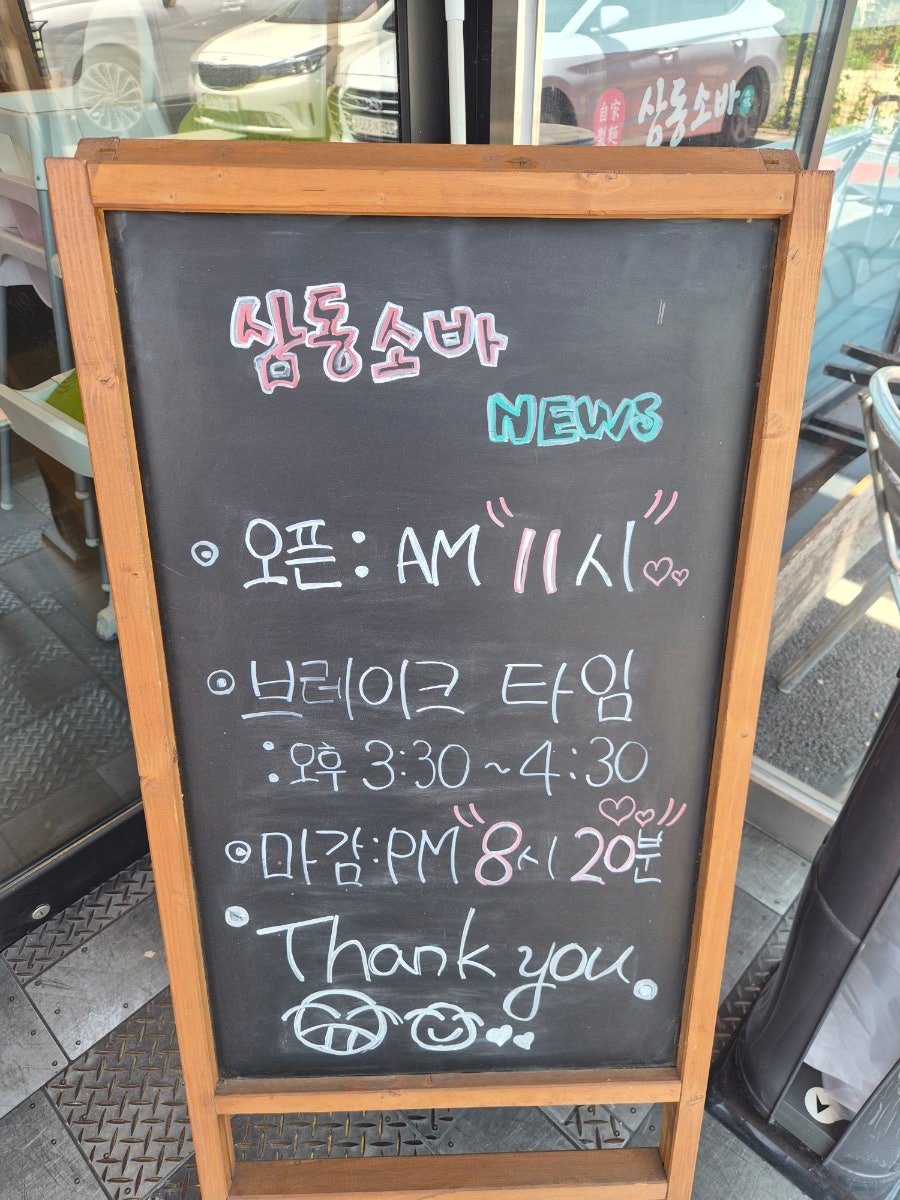 自家
製麺
삼동소바
삼동소바
NEWS
오픈: AM "11시"
브레이크 타임
: 오후 3:30 ~ 4:30
마감: PM "8시 20분"
Thank you.